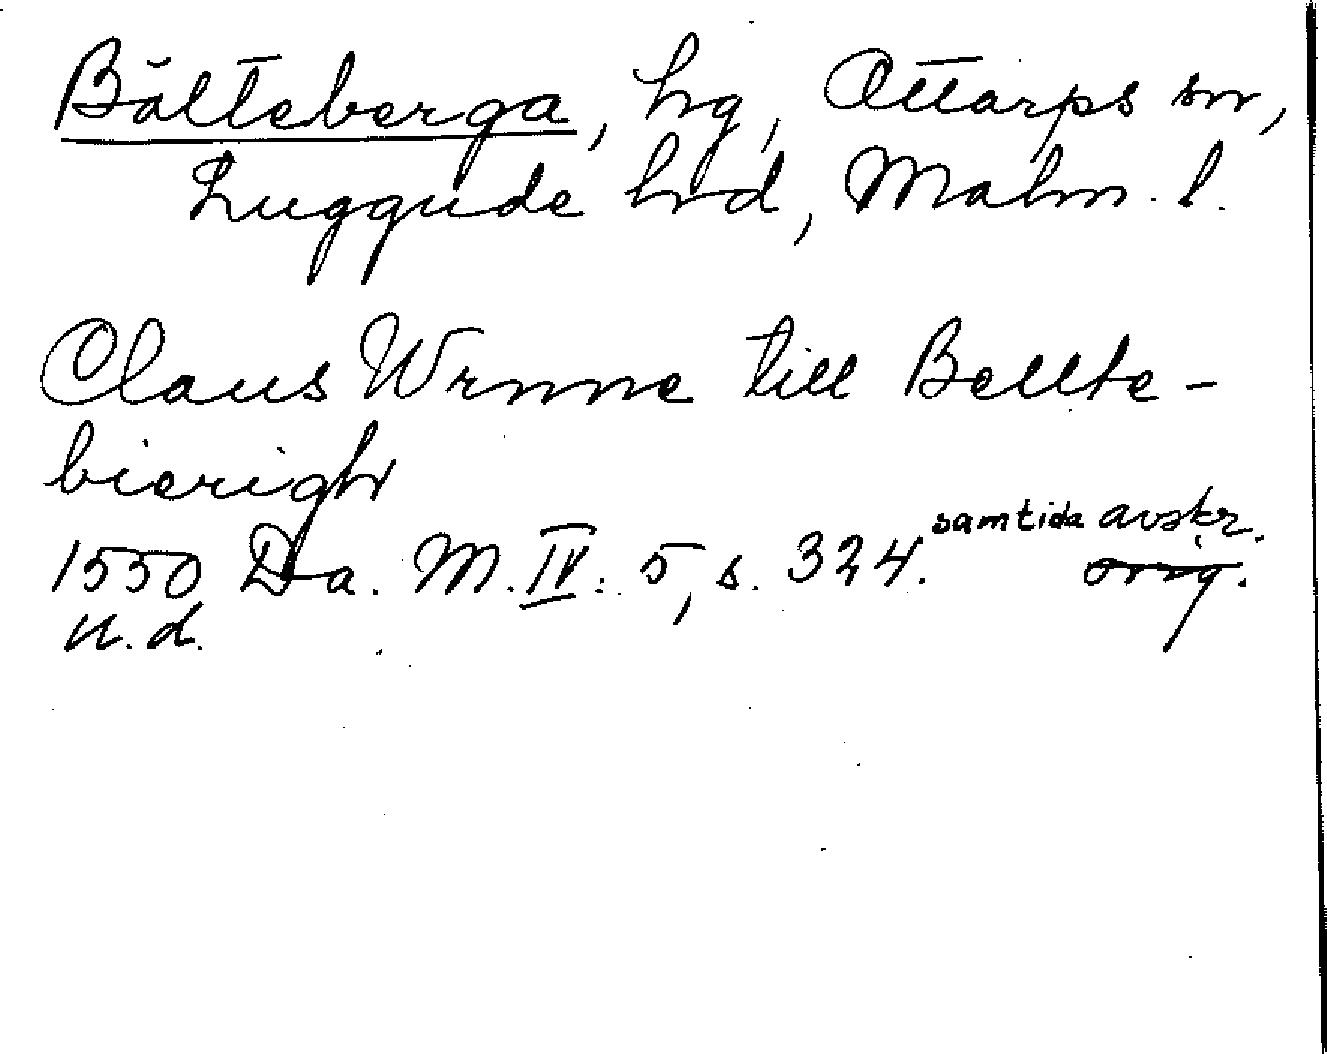 Bälteberga, hg, Ottarps sn,
Luggude hd, Malm. l.
Claus Wrnne till Bellte-
bierigh
samtida avskr.
1550 Da. M. IV: 5, s. 324. orig.
u. d.